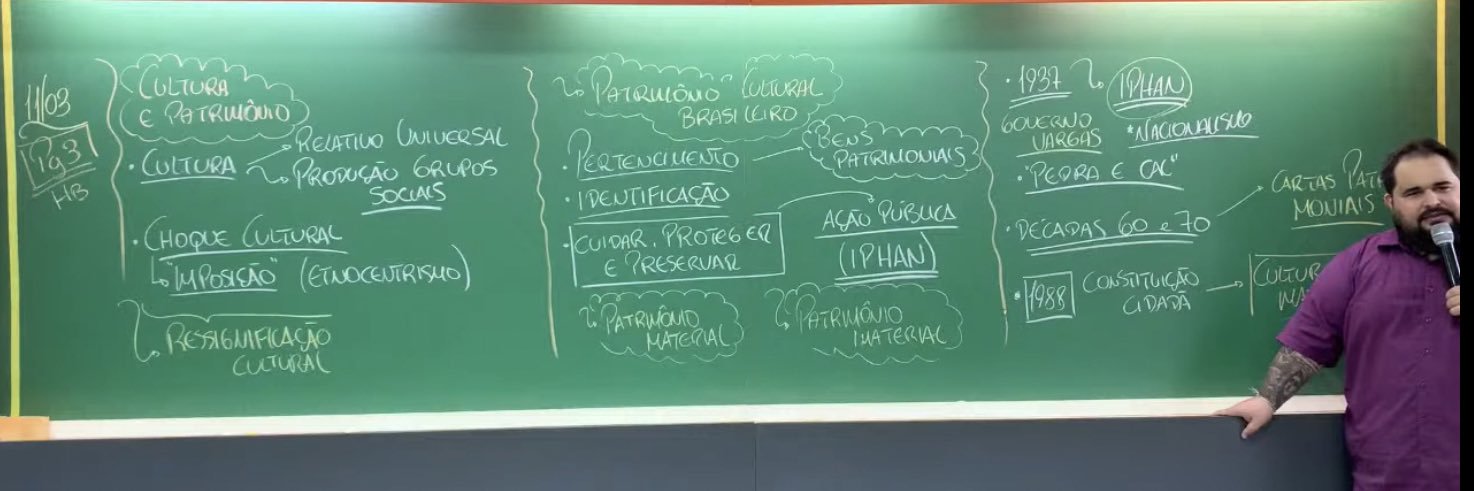 11/03
Pg3
HB
CULTURA
E PATRIMÔNIO
· CULTURA
RELATIVO UNIVERSAL
PRODUÇÃO GRUPOS
SOCIAIS
· CHOQUE CULTURAL
"IMPOSIÇÃO" (ETNOCENTRISMO)
RESSIGNIFICAÇÃO
CULTURAL
PATRIMÔNIO CULTURAL
BRASILEIRO
· PERTENCIMENTO
BENS
PATRIMONIAIS
· IDENTIFICAÇÃO
· CUIDAR, PROTEGER
E PRESERVAR
AÇÃO PÚBLICA
(IPHAN)
PATRIMÔNIO
MATERIAL
PATRIMÔNIO
IMATERIAL
· 1937
IPHAN
GOVERNO
VARGAS
*NACIONALISMO
· "PEDRA E CAL"
· DÉCADAS 60 e 70
CARTAS PATRI
MONIAIS
· 1988
CONSTITUIÇÃO
CIDADÃ
CULTUR